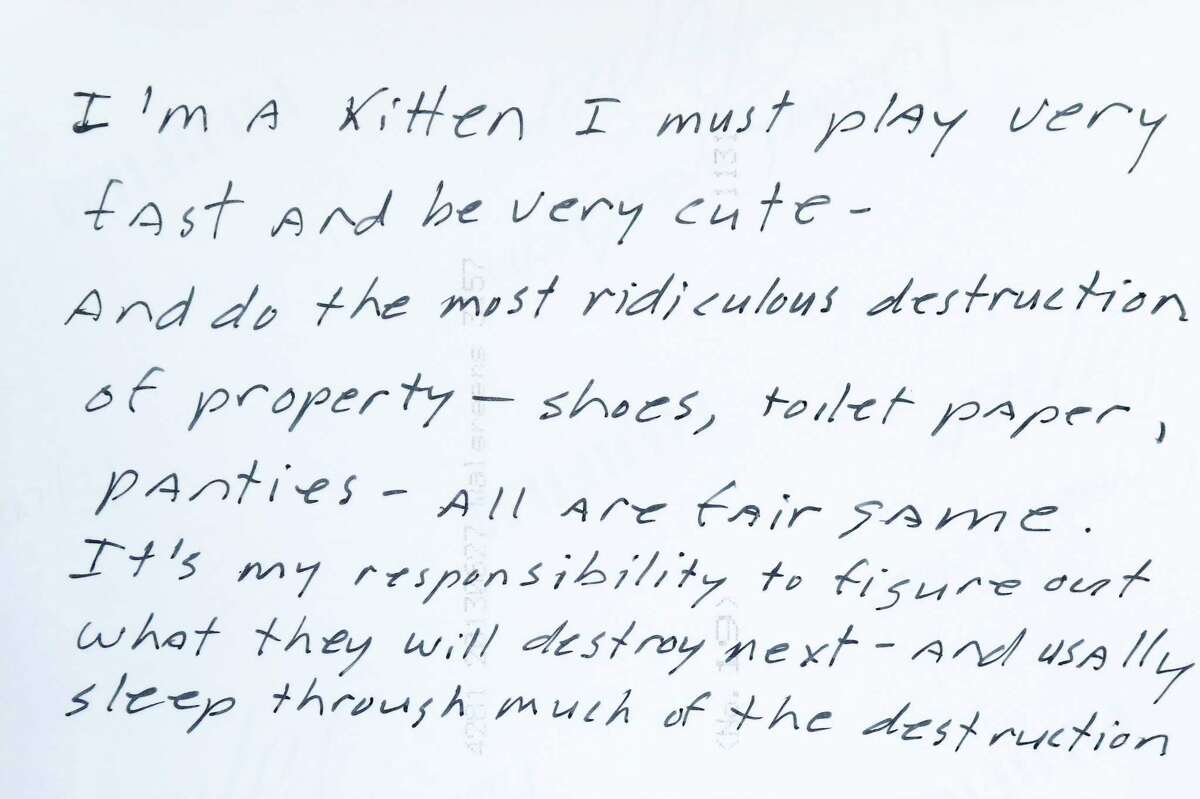 I'm A Kitten I must plAy very
fAst And be very cute -
And do the most ridiculous destruction
of property - shoes, toilet pAper,
pAnties - All Are fAir gAme.
It's my responsibility to figure out
whAt they will destroy next - And usAlly
sleep through much of the destruction